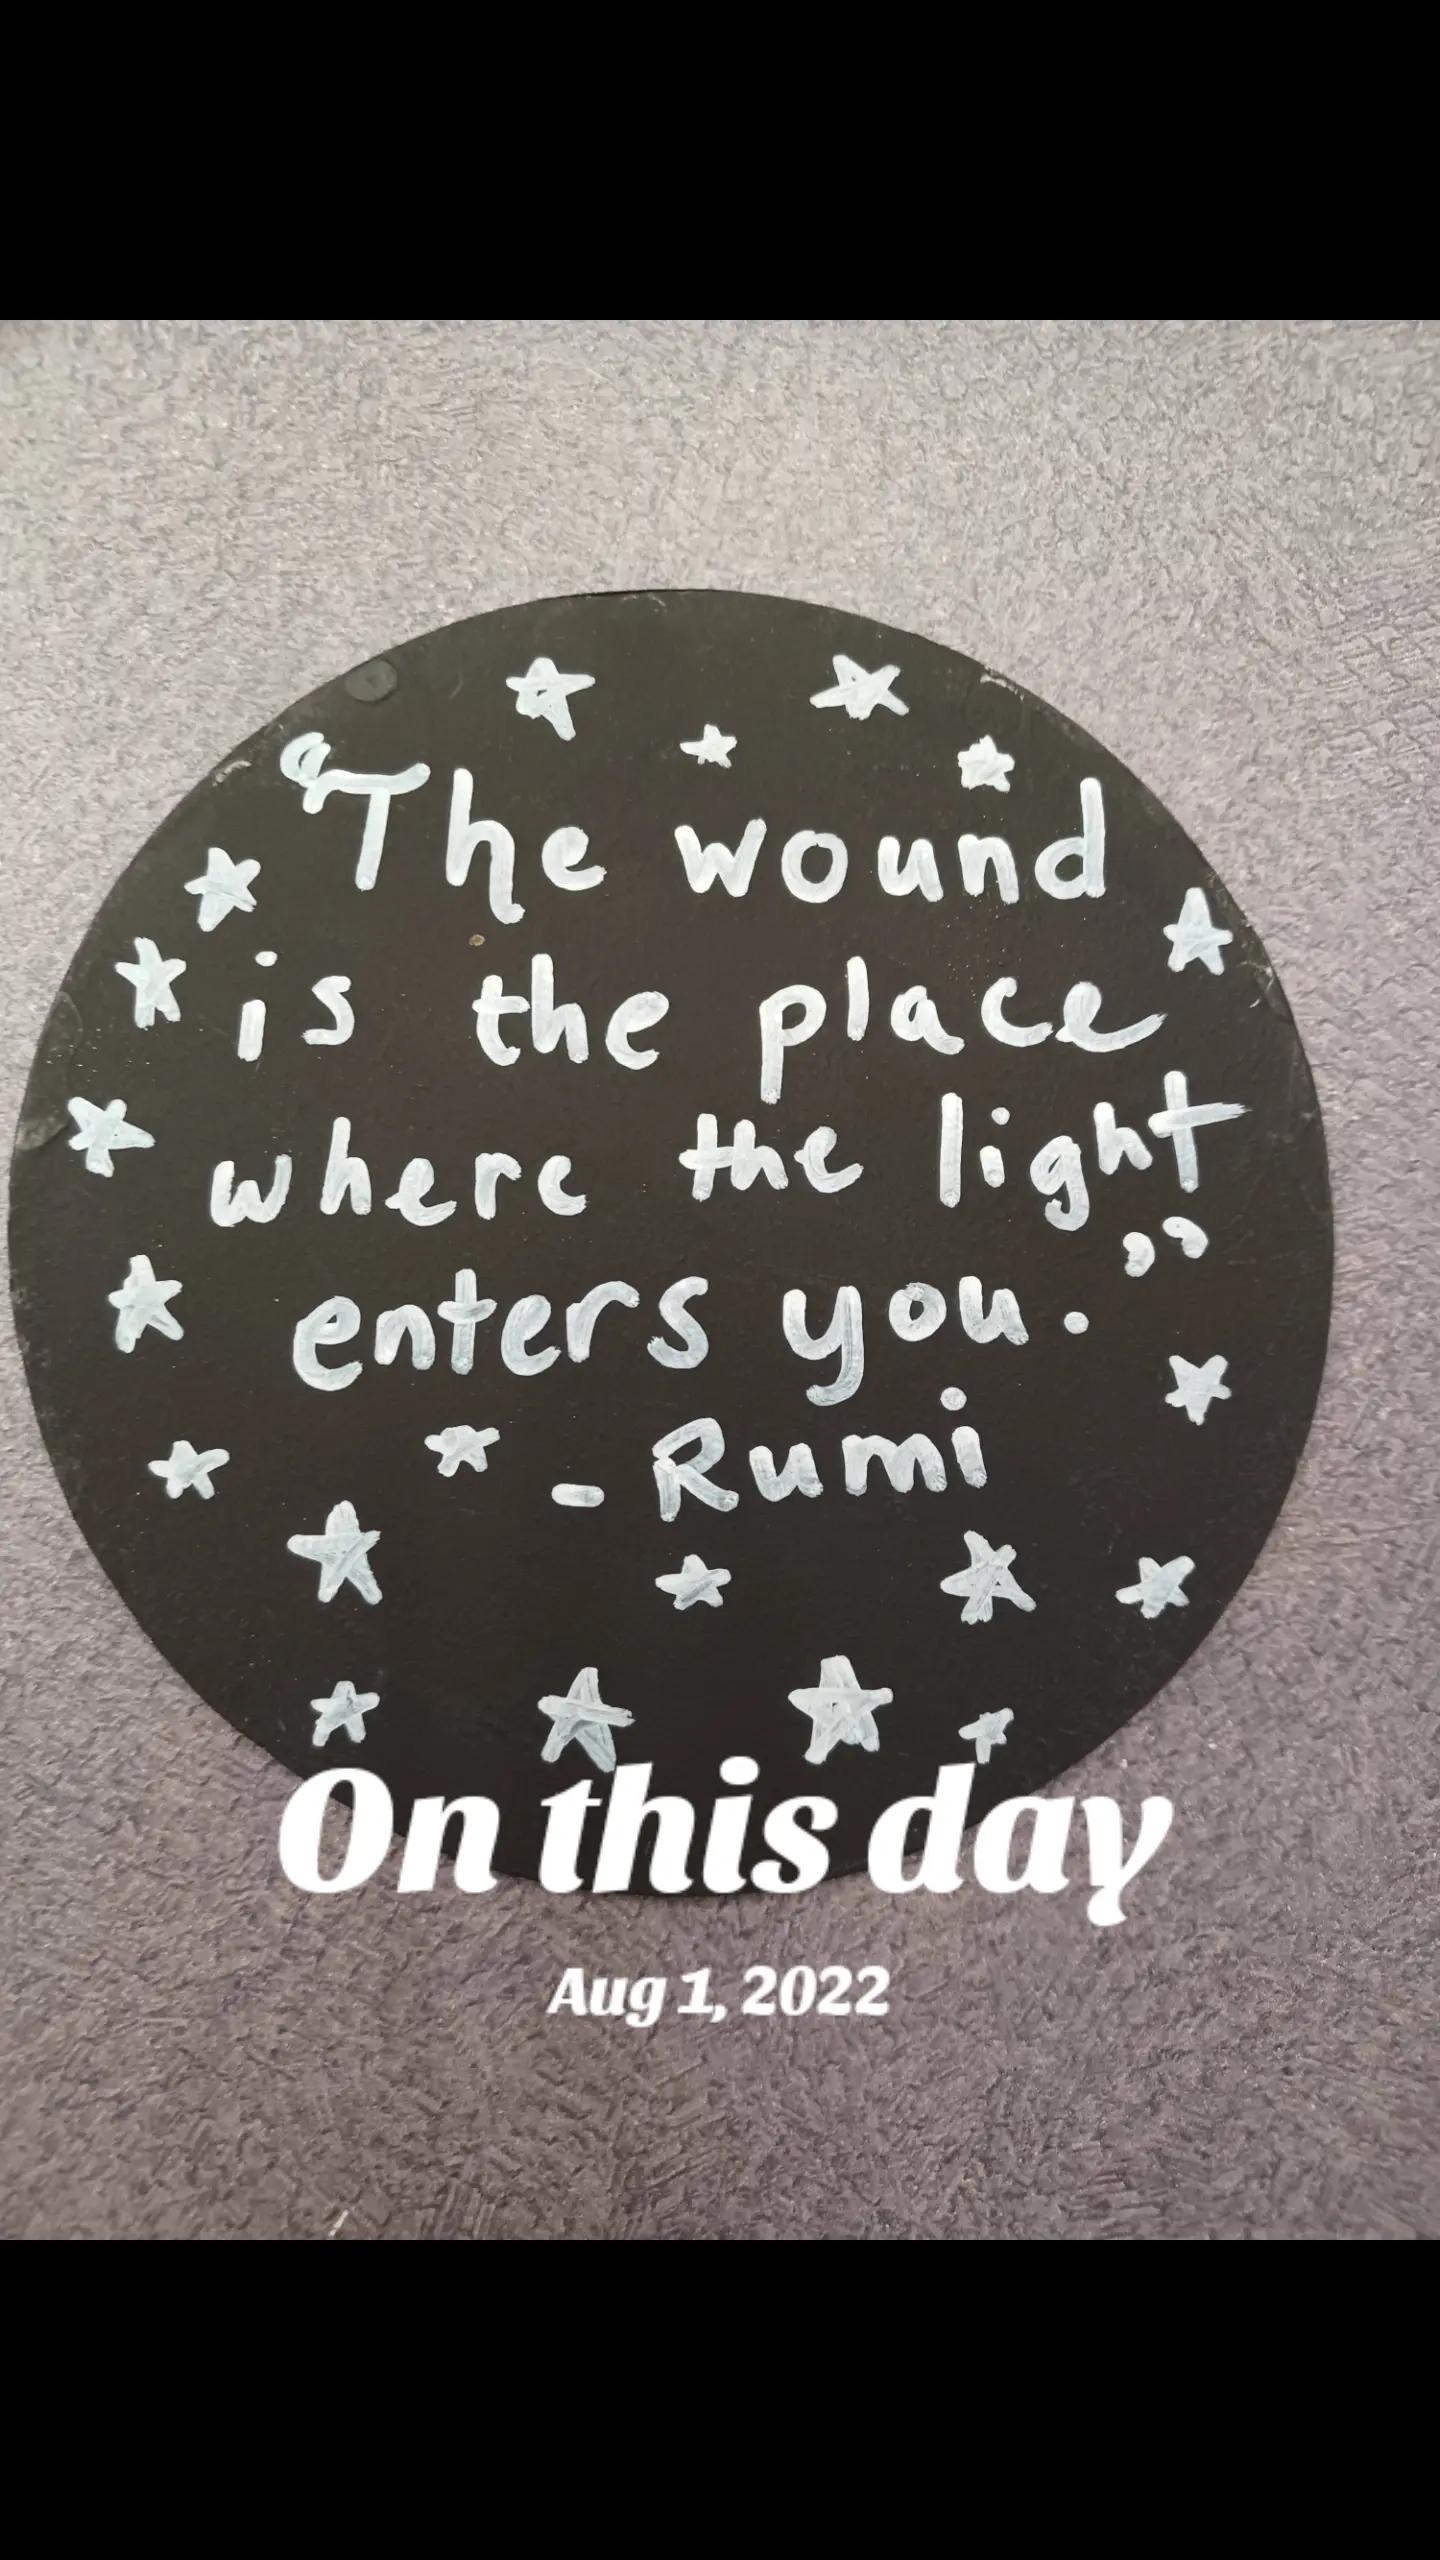 "The wound
is the place
where the light
enters you."
- Rumi
On this day
Aug 1, 2022